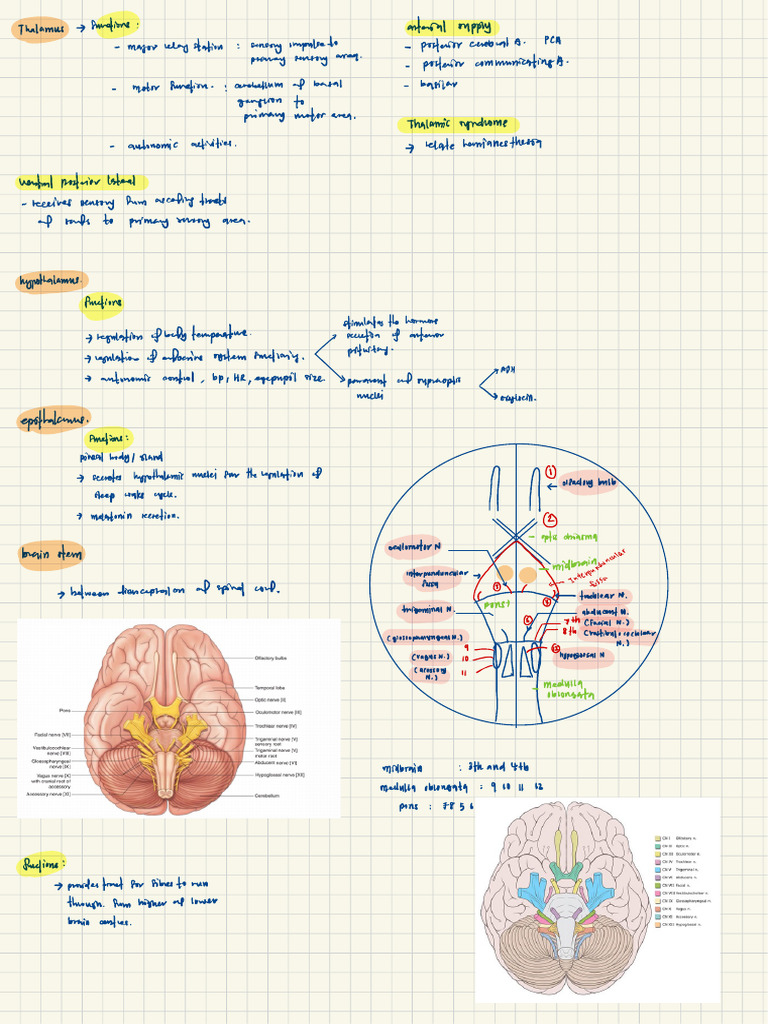 Thalamus → functions :
- major relay station : sensory impulse to
primary sensory area.
- motor function. : cerebellum of basal
ganglion to
primary motor area.
- autonomic activities.
arterial supply
- posterior cerebral A. PCA
- posterior communicating A.
- basilar
Thalamic syndrome
→ hemianesthesia
ventral posterior lateral
- receives sensory from ascending tracts
of sends to primary sensory area.
hypothalamus.
functions
→ regulation of body temperature.
→ regulation of endocrine system functions.
→ autonomic control, bp, HR, pupil size.
stimulates the hormone
secretion of anterior
pituitary.
supraoptic
nuclei
ADH
oxytocin.
epithalamus.
functions:
pineal body/gland
→ secretes hypothalamic nuclei for the regulation of
sleep wake cycle.
→ melatonin secretion.
brain stem
→ between of spinal cord.
1
← olfactory bulb
2
optic chiasma
oculomotor N
midbrain
interpeduncular
fossa
trochlear N.
pons
trigeminal N.
abducent N.
7th (facial N.)
8th (vestibulocochlear
N.)
(glossopharyngeal N.)
9
(vagus N.) 10
(accessory
N.) 11
12
hypoglossal N
medulla
oblongata
Olfactory bulbs
Temporal lobe
Optic nerve [II]
Oculomotor nerve [III]
Trochlear nerve [IV]
Trigeminal nerve [V]
sensory root
Trigeminal nerve [V]
motor root
Abducent nerve [VI]
Hypoglossal nerve [XII]
Cerebellum
Pons
Facial nerve [VII]
Vestibulocochlear
nerve [VIII]
Glossopharyngeal
nerve [IX]
Vagus nerve [X]
with cranial root of
accessory
Accessory nerve [XI]
midbrain : 3th and 4th
medulla oblongata : 9 10 11 12
pons : 7 8 5 6
functions:
→ provides tract for fibres to run
through. from higher of lower
brain centres.
CN I Olfactory n.
CN II Optic n.
CN III Oculomotor n.
CN IV Trochlear n.
CN V Trigeminal n.
CN VI Abducens n.
CN VII Facial n.
CN VIII Vestibulocochlear n.
CN IX Glossopharyngeal n.
CN X Vagus n.
CN XI Accessory n.
CN XII Hypoglossal n.